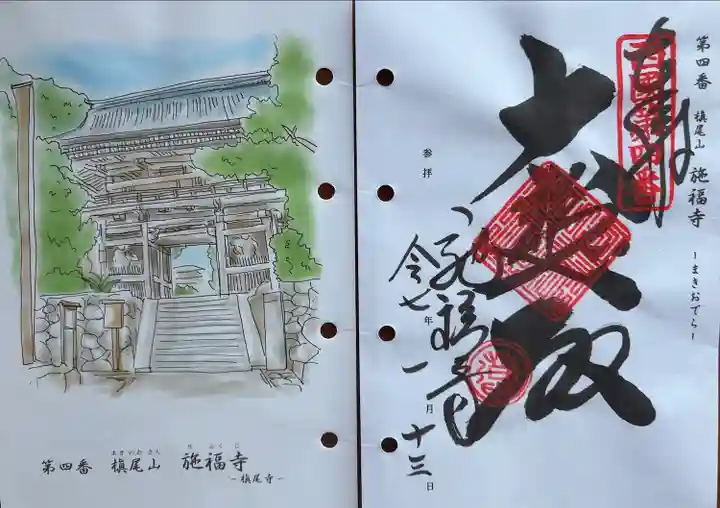 第四番 槇尾山 施福寺
まきのおさん せふくじ
-槇尾寺-
第四番 槇尾山 施福寺
-まきおでら-
奉拝
西國第四番
大悲殿
施福寺
参拝
令七年 一月 十三日